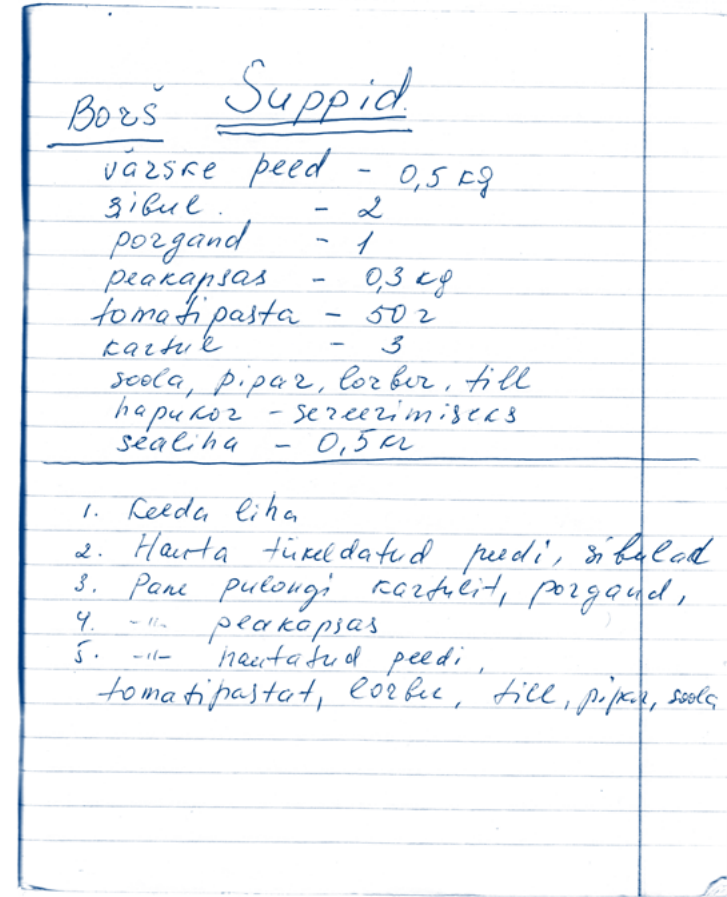 Suppid.
Borš
värske peed - 0,5 kg
sibul. - 2
porgand - 1
peakapsas - 0,3 kg
tomatipasta - 50 г
kartul - 3
soola, pipar, lorber, till
hapukor - sereerimiseks
sealiha - 0,5 кг
1. Keeda liha
2. Hauta tükeldatud peedi, sibulad
3. Pane pulongi kartulit, porgand,
4. -"- peakapsas
5. -"- hautatud peedi,
tomatipastat, lorber, till, pipar, soola